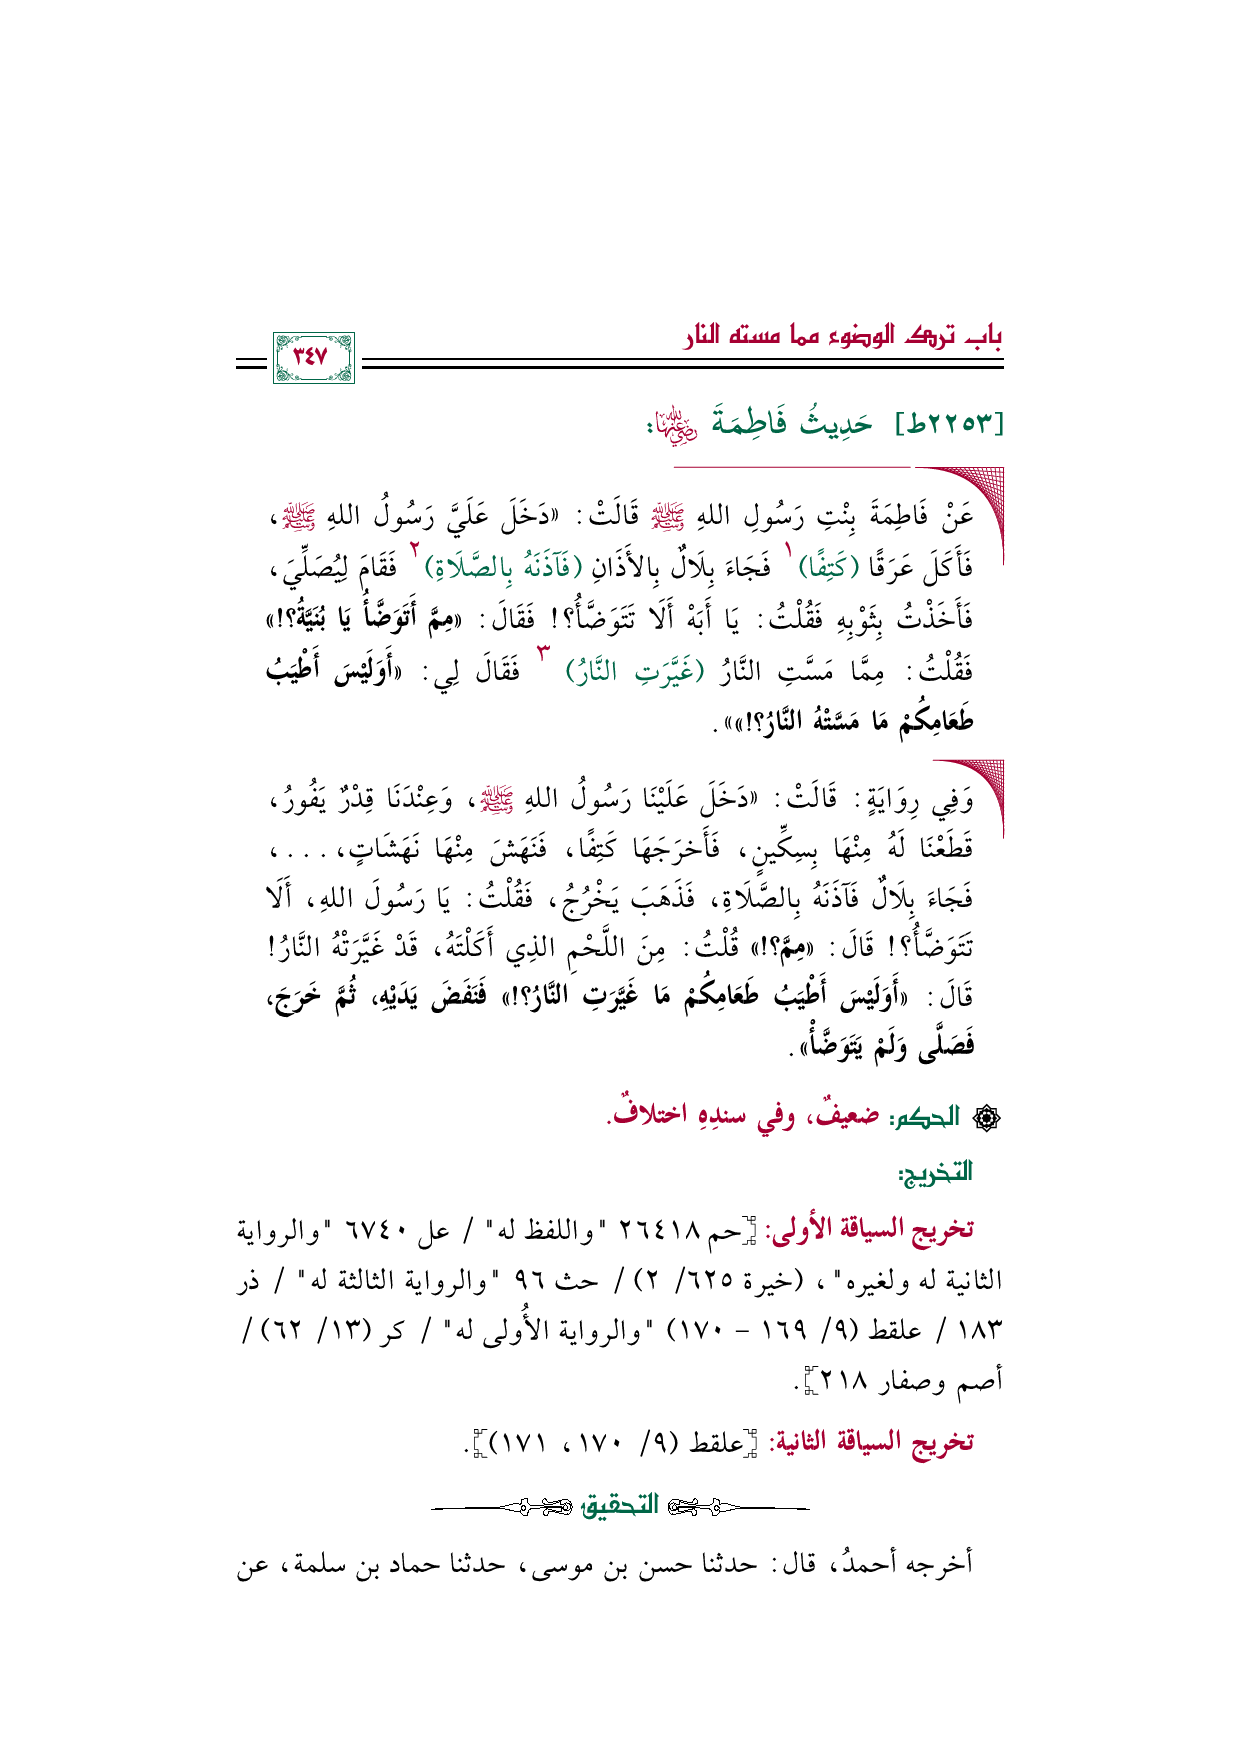 باب ترك الوضوء مما مسته النار
٣٤٧
[٢٢٥٣ط] حَدِيثُ فَاطِمَةَ رضي الله عنها:
عَنْ فَاطِمَةَ بِنْتِ رَسُولِ اللهِ ﷺ قَالَتْ: «دَخَلَ عَلَيَّ رَسُولُ اللهِ ﷺ،
فَأَكَلَ عَرَقًا (كَتِفًا)١ فَجَاءَ بِلَالٌ بِالأَذَانِ (فَآذَنَهُ بِالصَّلَاةِ)٢ فَقَامَ لِيُصَلِّيَ،
فَأَخَذْتُ بِثَوْبِهِ فَقُلْتُ: يَا أَبَهْ أَلَا تَتَوَضَّأُ؟! فَقَالَ: «مِمَّ أَتَوَضَّأُ يَا بُنَيَّةُ؟!»
فَقُلْتُ: مِمَّا مَسَّتِ النَّارُ (غَيَّرَتِ النَّارُ)٣ فَقَالَ لِي: «أَوَلَيْسَ أَطْيَبُ
طَعَامِكُمْ مَا مَسَّتْهُ النَّارُ؟!»».
وَفِي رِوَايَةٍ: قَالَتْ: «دَخَلَ عَلَيْنَا رَسُولُ اللهِ ﷺ، وَعِنْدَنَا قِدْرٌ يَفُورُ،
قَطَعْنَا لَهُ مِنْهَا بِسِكِّينٍ، فَأَخرَجَهَا كَتِفًا، فَنَهَشَ مِنْهَا نَهَشَاتٍ،...،
فَجَاءَ بِلَالٌ فَآذَنَهُ بِالصَّلَاةِ، فَذَهَبَ يَخْرُجُ، فَقُلْتُ: يَا رَسُولَ اللهِ، أَلَا
تَتَوَضَّأُ؟! قَالَ: «مِمَّ؟!» قُلْتُ: مِنَ اللَّحْمِ الذِي أَكَلْتَهُ، قَدْ غَيَّرَتْهُ النَّارُ!
قَالَ: «أَوَلَيْسَ أَطْيَبُ طَعَامِكُمْ مَا غَيَّرَتِ النَّارُ؟!» فَنَفَضَ يَدَيْهِ، ثُمَّ خَرَجَ،
فَصَلَّى وَلَمْ يَتَوَضَّأْ».
الحكم: ضعيفٌ، وفي سندِهِ اختلافٌ.
التخريج:
تخريج السياقة الأولى: [حم ٢٦٤١٨ "واللفظ له" / عل ٦٧٤٠ "والرواية
الثانية له ولغيره"، (خيرة ٦٢٥/ ٢) / حث ٩٦ "والرواية الثالثة له" / ذر
١٨٣ / علقط (٩/ ١٦٩ - ١٧٠) "والرواية الأُولى له" / كر (١٣/ ٦٢) /
أصم وصفار ٢١٨].
تخريج السياقة الثانية: [علقط (٩/ ١٧٠، ١٧١)].
التحقيق
أخرجه أحمدُ، قال: حدثنا حسن بن موسى، حدثنا حماد بن سلمة، عن